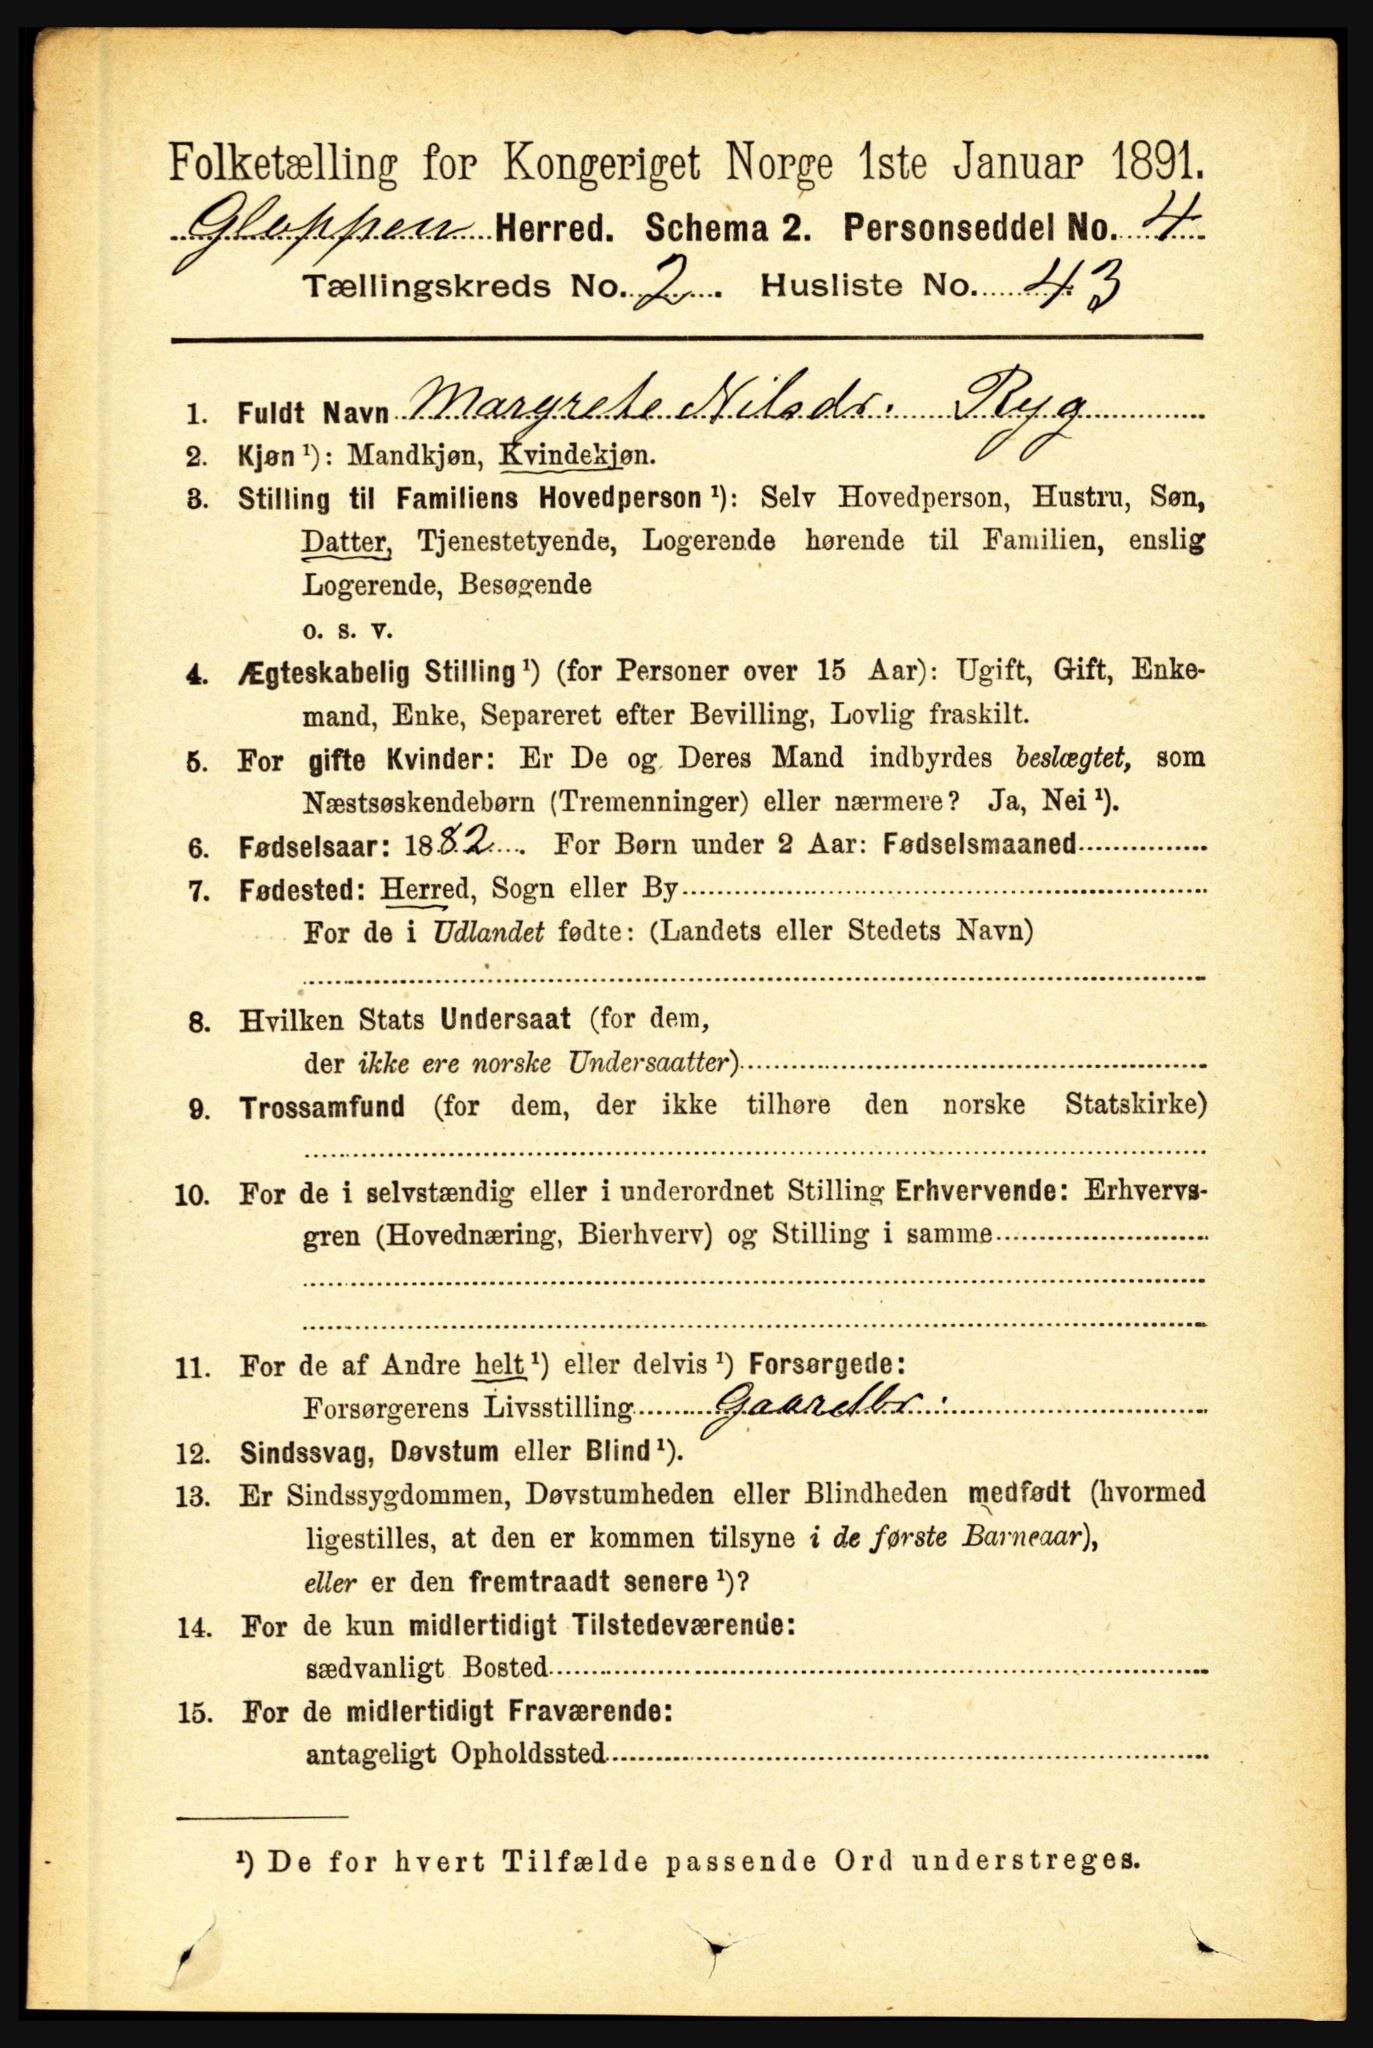 Folketælling for Kongeriget Norge 1ste Januar 1891.
Gloppen Herred. Schema 2. Personseddel No. 4
Tællingskreds No. 2. Husliste No. 43
1. Fuldt Navn Margrete Nilsdr. Ryg
2. Kjøn¹): Mandkjøn, Kvindekjøn.
3. Stilling til Familiens Hovedperson¹): Selv Hovedperson, Hustru, Søn,
Datter, Tjenestetyende, Logerende hørende til Familien, enslig
Logerende, Besøgende
o. s. v.
4. Ægteskabelig Stilling¹) (for Personer over 15 Aar): Ugift, Gift, Enke-
mand, Enke, Separeret efter Bevilling, Lovlig fraskilt.
5. For gifte Kvinder: Er De og Deres Mand indbyrdes beslægtet, som
Næstsøskendebørn (Tremenninger) eller nærmere? Ja, Nei¹).
6. Fødselsaar: 1882. For Børn under 2 Aar: Fødselsmaaned
7. Fødested: Herred, Sogn eller By
For de i Udlandet fødte: (Landets eller Stedets Navn)
8. Hvilken Stats Undersaat (for dem,
der ikke ere norske Undersaatter)
9. Trossamfund (for dem, der ikke tilhøre den norske Statskirke)
10. For de i selvstændig eller i underordnet Stilling Erhvervende: Erhvervs-
gren (Hovednæring, Bierhverv) og Stilling i samme
11. For de af Andre helt¹) eller delvis¹) Forsørgede:
Forsørgerens Livsstilling Gaardbr.
12. Sindssvag, Døvstum eller Blind¹).
13. Er Sindssygdommen, Døvstumheden eller Blindheden medfødt (hvormed
ligestilles, at den er kommen tilsyne i de første Barneaar),
eller er den fremtraadt senere¹)?
14. For de kun midlertidigt Tilstedeværende:
sædvanligt Bosted
15. For de midlertidigt Fraværende:
antageligt Opholdssted
¹) De for hvert Tilfælde passende Ord understreges.